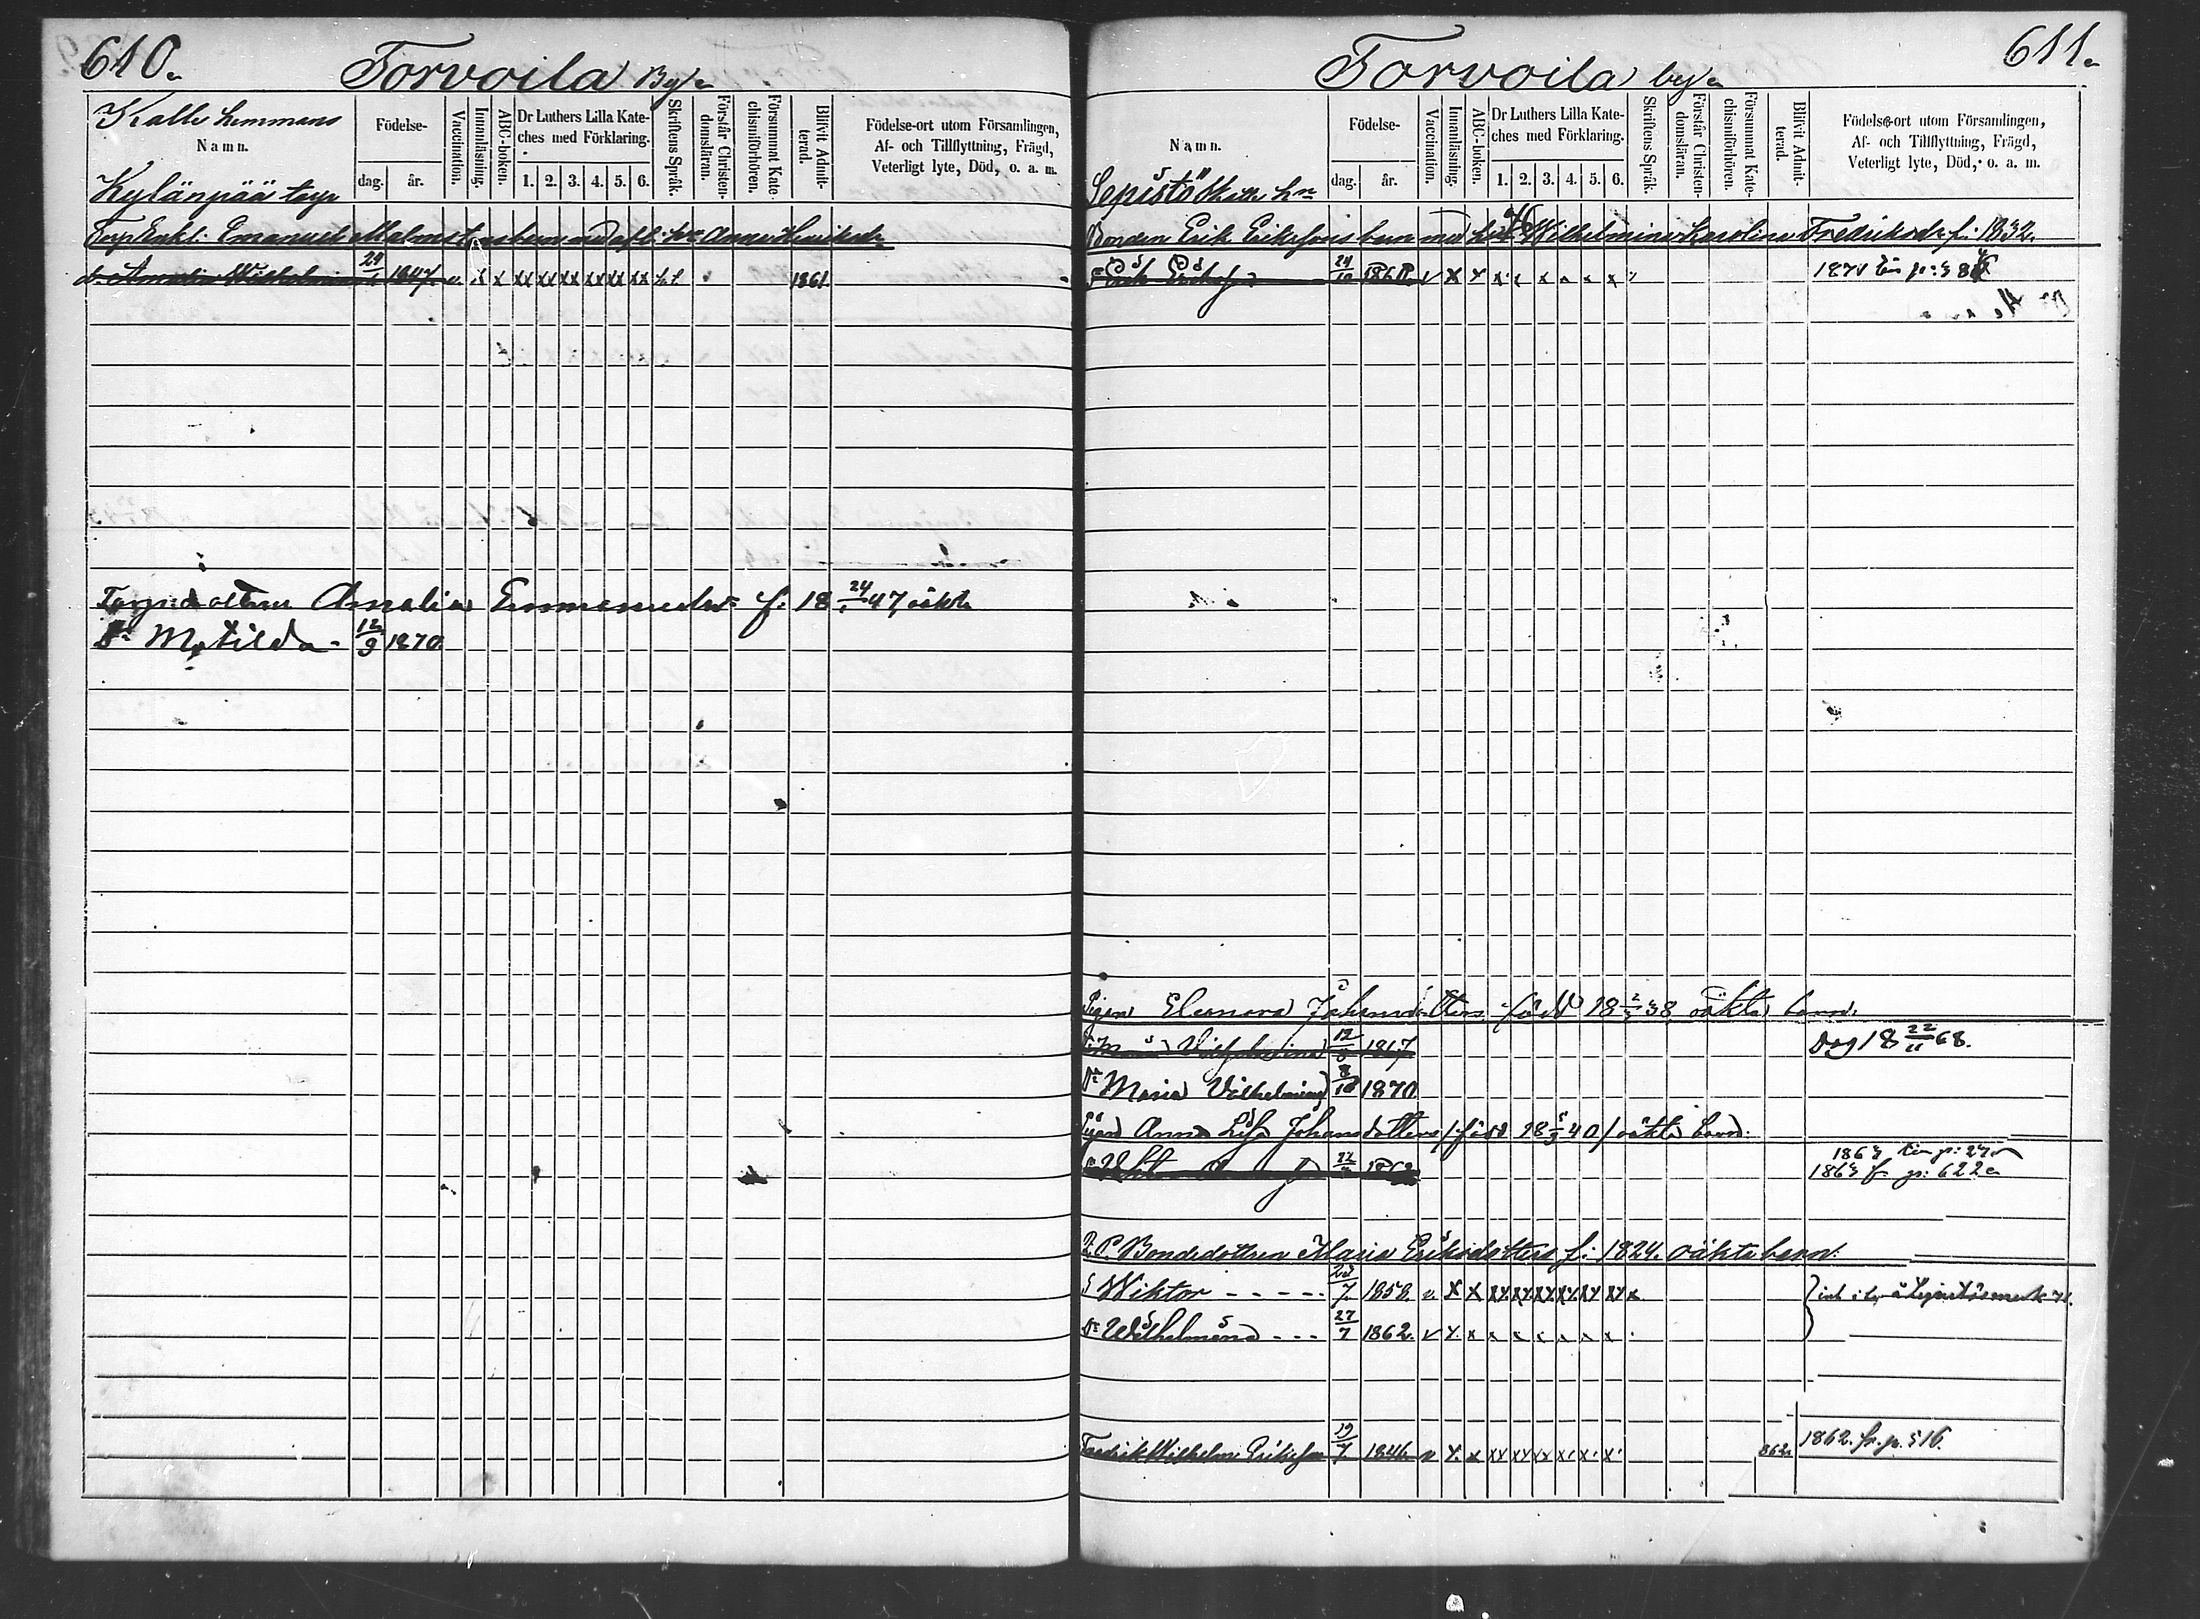 610.
Torvoila By
Kalle hemmans
Namn.
Födelse-
dag.
år.
Vaccination.
Innanläsning.
ABC-boken.
Dr Luthers Lilla Kate-
ches med Förklaring.
1. 2. 3. 4. 5. 6.
Skriftens Språk.
Förstår Christen-
domsläran.
Försummat Kate-
chismiförhören.
Blifvit Admit-
terad.
Födelse-ort utom Församlingen,
Af- och Tillflyttning, Frägd,
Veterligt lyte, Död, o. a. m.
Kylänpää torp
Torp Enkl: Emanuel Malmst barn med afl: hu Anna Henriksdr
dr Amalia Wilhelmina 1847. v. x x xx xx xx xx xx xx 1861.
Torp: dottern Amalia Emanuelsdr f: 18 24/1 47, oäkta
Dr Matilda - 12/9 1870.
611.
Torvoila by
Namn.
Födelse-
dag.
år.
Vaccination.
Innanläsning.
ABC-boken.
Dr Luthers Lilla Kate-
ches med Förklaring.
1. 2. 3. 4. 5. 6.
Skriftens Språk.
Förstår Christen-
domsläran.
Försummat Kate-
chismiförhören.
Blifvit Admit-
terad.
Födelse-ort utom Församlingen,
Af- och Tillflyttning, Frägd,
Veterligt lyte, Död, o. a. m.
Sepistö Skatte hn
Bonden Erik Erikssons barn med Wilhelmina Karolina Fredriksdr f: 1832.
Erik Eriksson 24/10
Pigan Eleonora Johansdotters född 18 38 oäkta barn.
Wilhelmina 12 1867 Dog 18 22/11 68.
Dr Maria Vilhelmina 8/10 1870
Pigan Anna Lisa Johansdotters / född 18 40 / oäkta barn:
1863 f. p: 622
Bondedottren Maria Eriksdotters f: 1824. oäkta barn:
S Wiktor - - - - - 7. 1858. v. x x xx xx xx xx xx xx x
Dr Wilhelmina - - - 27/7 1862. v x. x x x x x x x
Fredrik Wilhelm Eriksson 19/7. 1846. v x. x xx xx xx x x x 862. 1862. fr. p. 516.